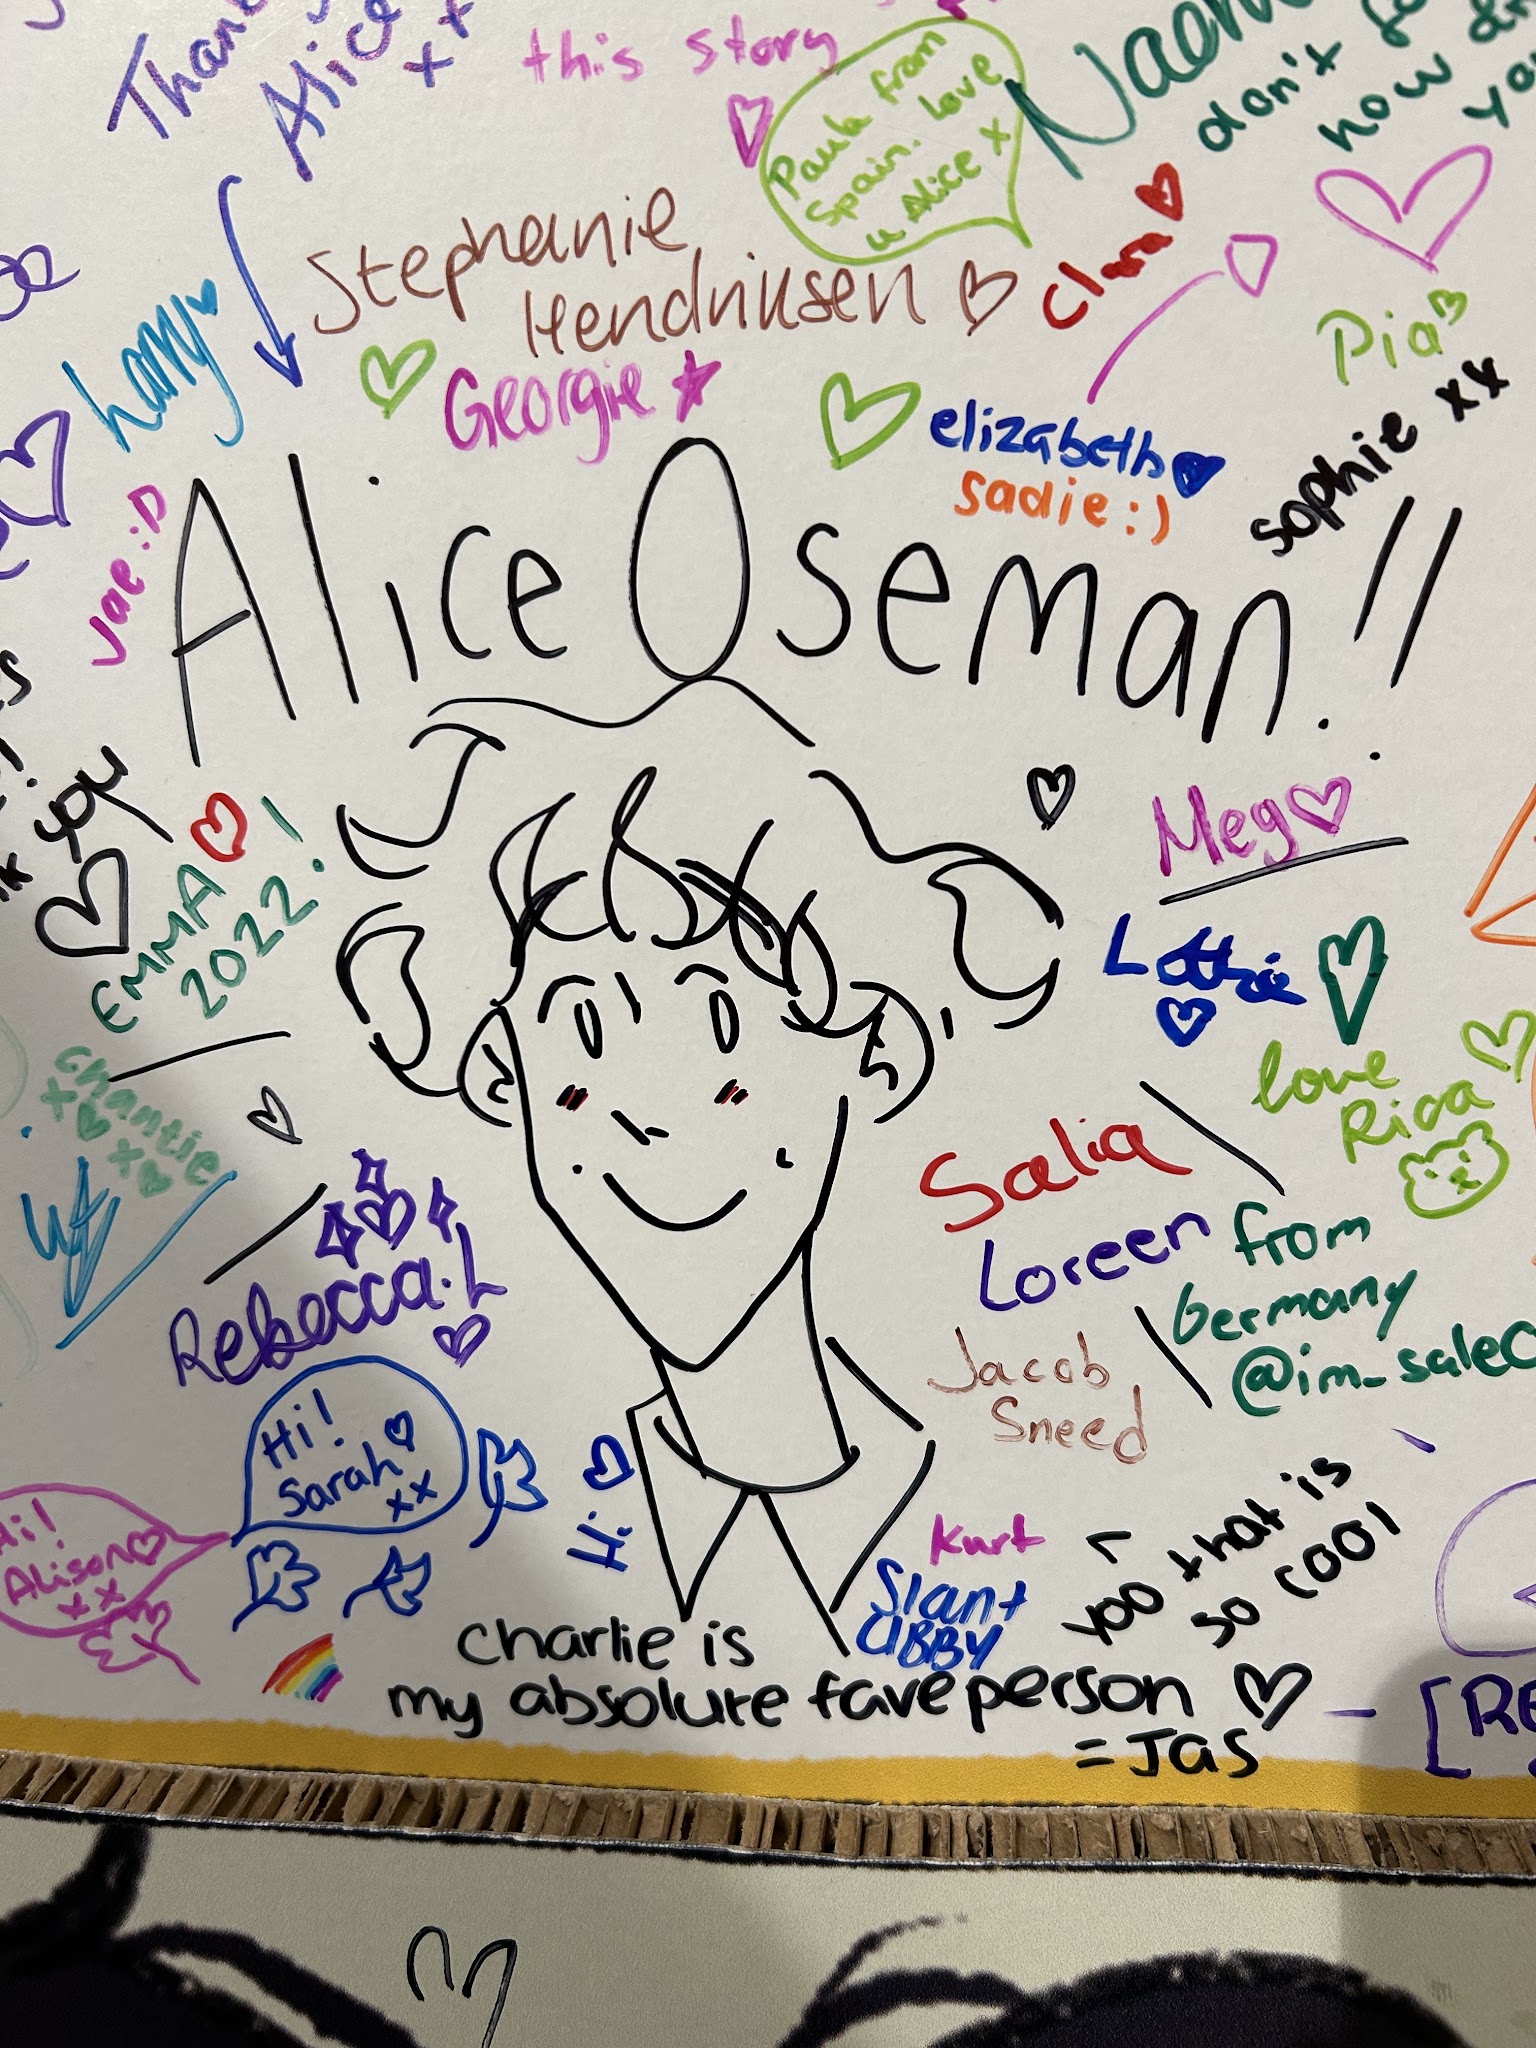 Alice
xx
this story
Paula from
Spain. love
u Alice x
don't
how
Stephanie
Hendriksen
Clara
Harry
Georgie
Pia
elizabeth
sadie :)
sophie xx
Jae :D
Alice Oseman!!
you
EMMA
2022!
Meg
Lottie
love
Rica
Chantie
x
x
Saelia
Loreen from
Germany
Rebecca.L
Jacob
Sneed
Hi!
Sarah
xx
Hi!
Alison
xx
Hi
Kurt
yoo that is
so cool
charlie is
my absolute fave person
= Jas